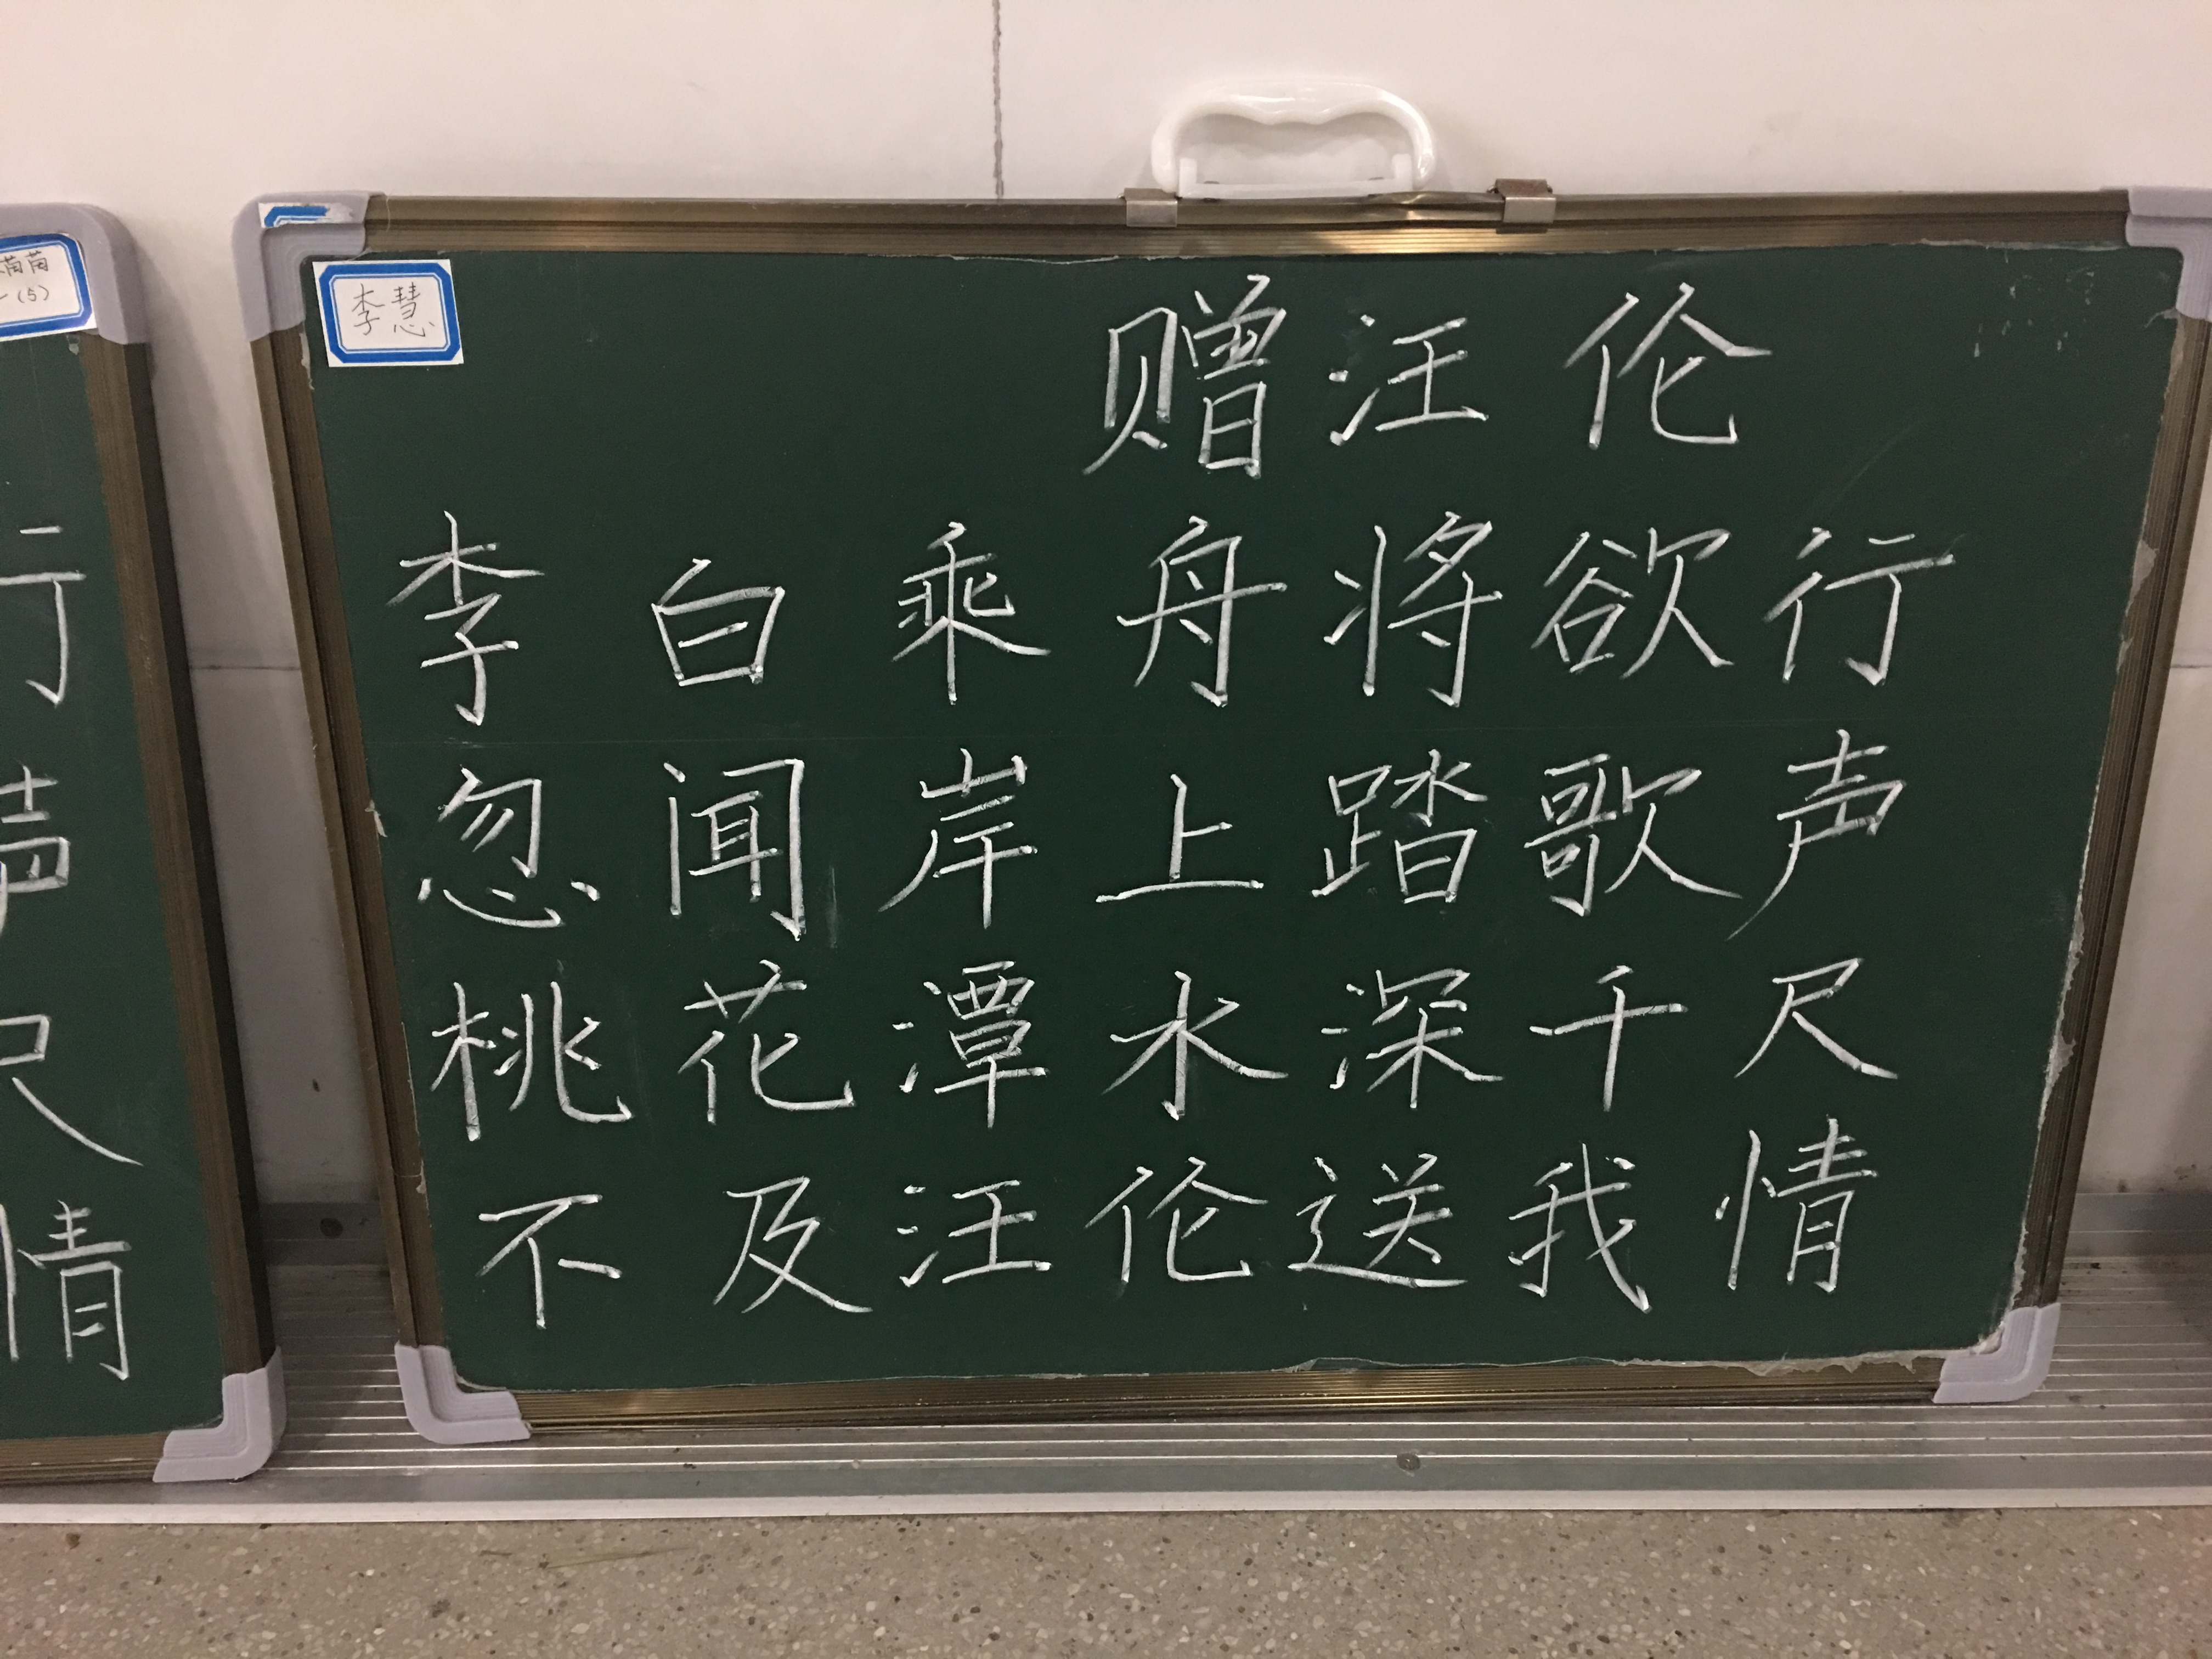 苗苗
(5)
行
声
尺
情
李慧
赠汪伦
李白乘舟将欲行
忽闻岸上踏歌声
桃花潭水深千尺
不及汪伦送我情